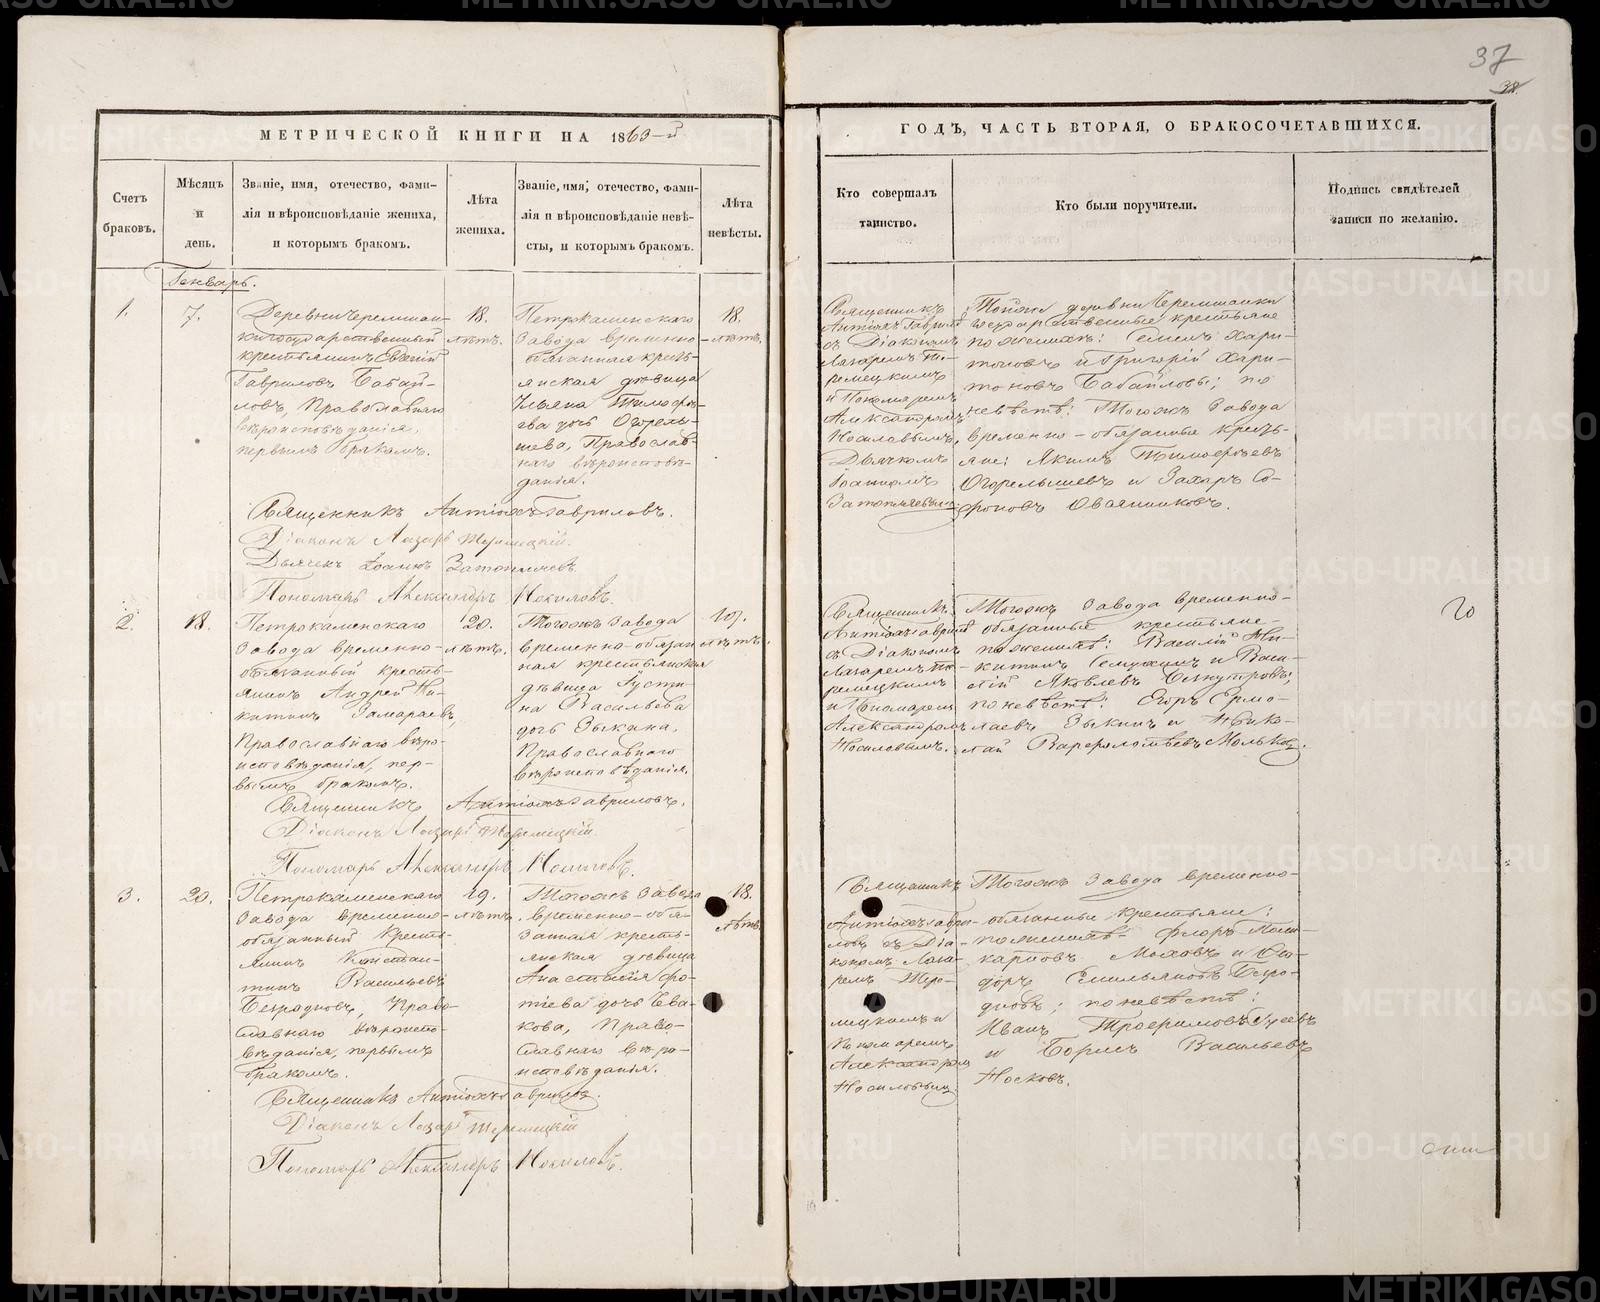 37
МЕТРИЧЕСКОЙ КНИГИ НА 1863-й
ГОДЪ, ЧАСТЬ ВТОРАЯ, О БРАКОСОЧЕТАВШИХСЯ.
Счетъ
браковъ.
Мѣсяцъ
и
день.
Званіе, имя, отечество, фами-
лія и вѣроисповѣданіе жениха,
и которымъ бракомъ.
Лѣта
жениха.
Званіе, имя, отечество, фами-
лія и вѣроисповѣданіе невѣ-
сты, и которымъ бракомъ.
Лѣта
невѣсты.
Кто совершалъ
таинство.
Кто были поручители.
Подпись свидѣтелей
записи по желанію.
Генварь.
1.
7.
Деревни Черемшан-
ки государственный
крестьянинъ
Гавриловъ Бабай-
ловъ, Православнаго
вѣроисповѣданія,
первымъ бракомъ.
18.
лѣтъ.
Петрокаменскаго
Завода временно-
обязанная кресть-
янская дѣвица
Ульяна Тимофѣ-
ева дочь Огорель-
шева, Православ-
наго вѣроисповѣ-
данія.
18.
лѣтъ.
Священникъ
Антіохъ Гаврил
съ Діакономъ
Лазаремъ
и Пономаремъ
Александромъ
Носиловымъ,
Дьячкомъ
Іоанномъ
Затопляевымъ
деревни Черемшанки
государственные крестьяне
по женихѣ: Семенъ Хари-
тоновъ и Григорій Хари-
тоновъ Бабайловы; по
невѣстѣ: Тогожъ Завода
временно-обязанные кресть-
яне: Якимъ Тимофѣевъ
Огорельшевъ и Захаръ Со-
фроновъ Овсянниковъ.
Священникъ Антіохъ Гавриловъ.
Діаконъ Лазарь
Дьячекъ Іоаннъ Затопляевъ
Пономарь Александръ Носиловъ.
2.
18.
Петрокаменскаго
Завода временно-
обязанный кресть-
янинъ Андрей Ни-
китинъ Замараевъ,
Православнаго вѣро-
исповѣданія, пер-
вымъ бракомъ.
20.
лѣтъ.
Тогожъ Завода
временно-обязан
ная крестьянская
дѣвица Густи-
на Васильева
дочь Зыкина,
Православнаго
вѣроисповѣданія.
лѣтъ.
Священникъ
Антіохъ Гаврил
съ Діакономъ
Лазаремъ
и Пономаремъ
Александромъ
Носиловымъ.
Тогожъ Завода временно-
обязанные крестьяне
по женихѣ: Василій Ни-
китинъ и Васи-
лій Яковлевъ
по невѣстѣ: Егоръ Ермо-
лаевъ Зыкинъ и Нико-
лай Варфоломѣевъ
Священникъ Антіохъ Гавриловъ.
Діаконъ Лазарь
Пономарь Александръ Носиловъ.
3.
20.
Петрокаменскаго
Завода временно-
обязанный кресть-
янинъ Констан-
тинъ Васильевъ
Безродновъ, Право-
славнаго вѣроиспо-
вѣданія, первымъ
бракомъ.
19.
лѣтъ.
Тогожъ Завода
временно-обя-
занная кресть-
янская дѣвица
Анастасія Фо-
тіева дочь Ева-
кова, Право-
славнаго вѣро-
исповѣданія.
18.
лѣтъ.
Священникъ
Антіохъ Гаври-
ловъ съ Діа-
кономъ Лаза-
ремъ
и
Пономаремъ
Александромъ
Носиловымъ
Тогожъ Завода временно-
обязанные крестьяне:
по женихѣ Флоръ Поли-
карповъ и
Емельяновъ Безро-
дновъ; по невѣстѣ:
Иванъ Трофимовъ Гусевъ
и Борисъ Васильевъ
Носковъ.
Священникъ Антіохъ Гавриловъ.
Діаконъ Лазарь
Пономарь Александръ Носиловъ.
METRIKI.GASO-URAL.RU